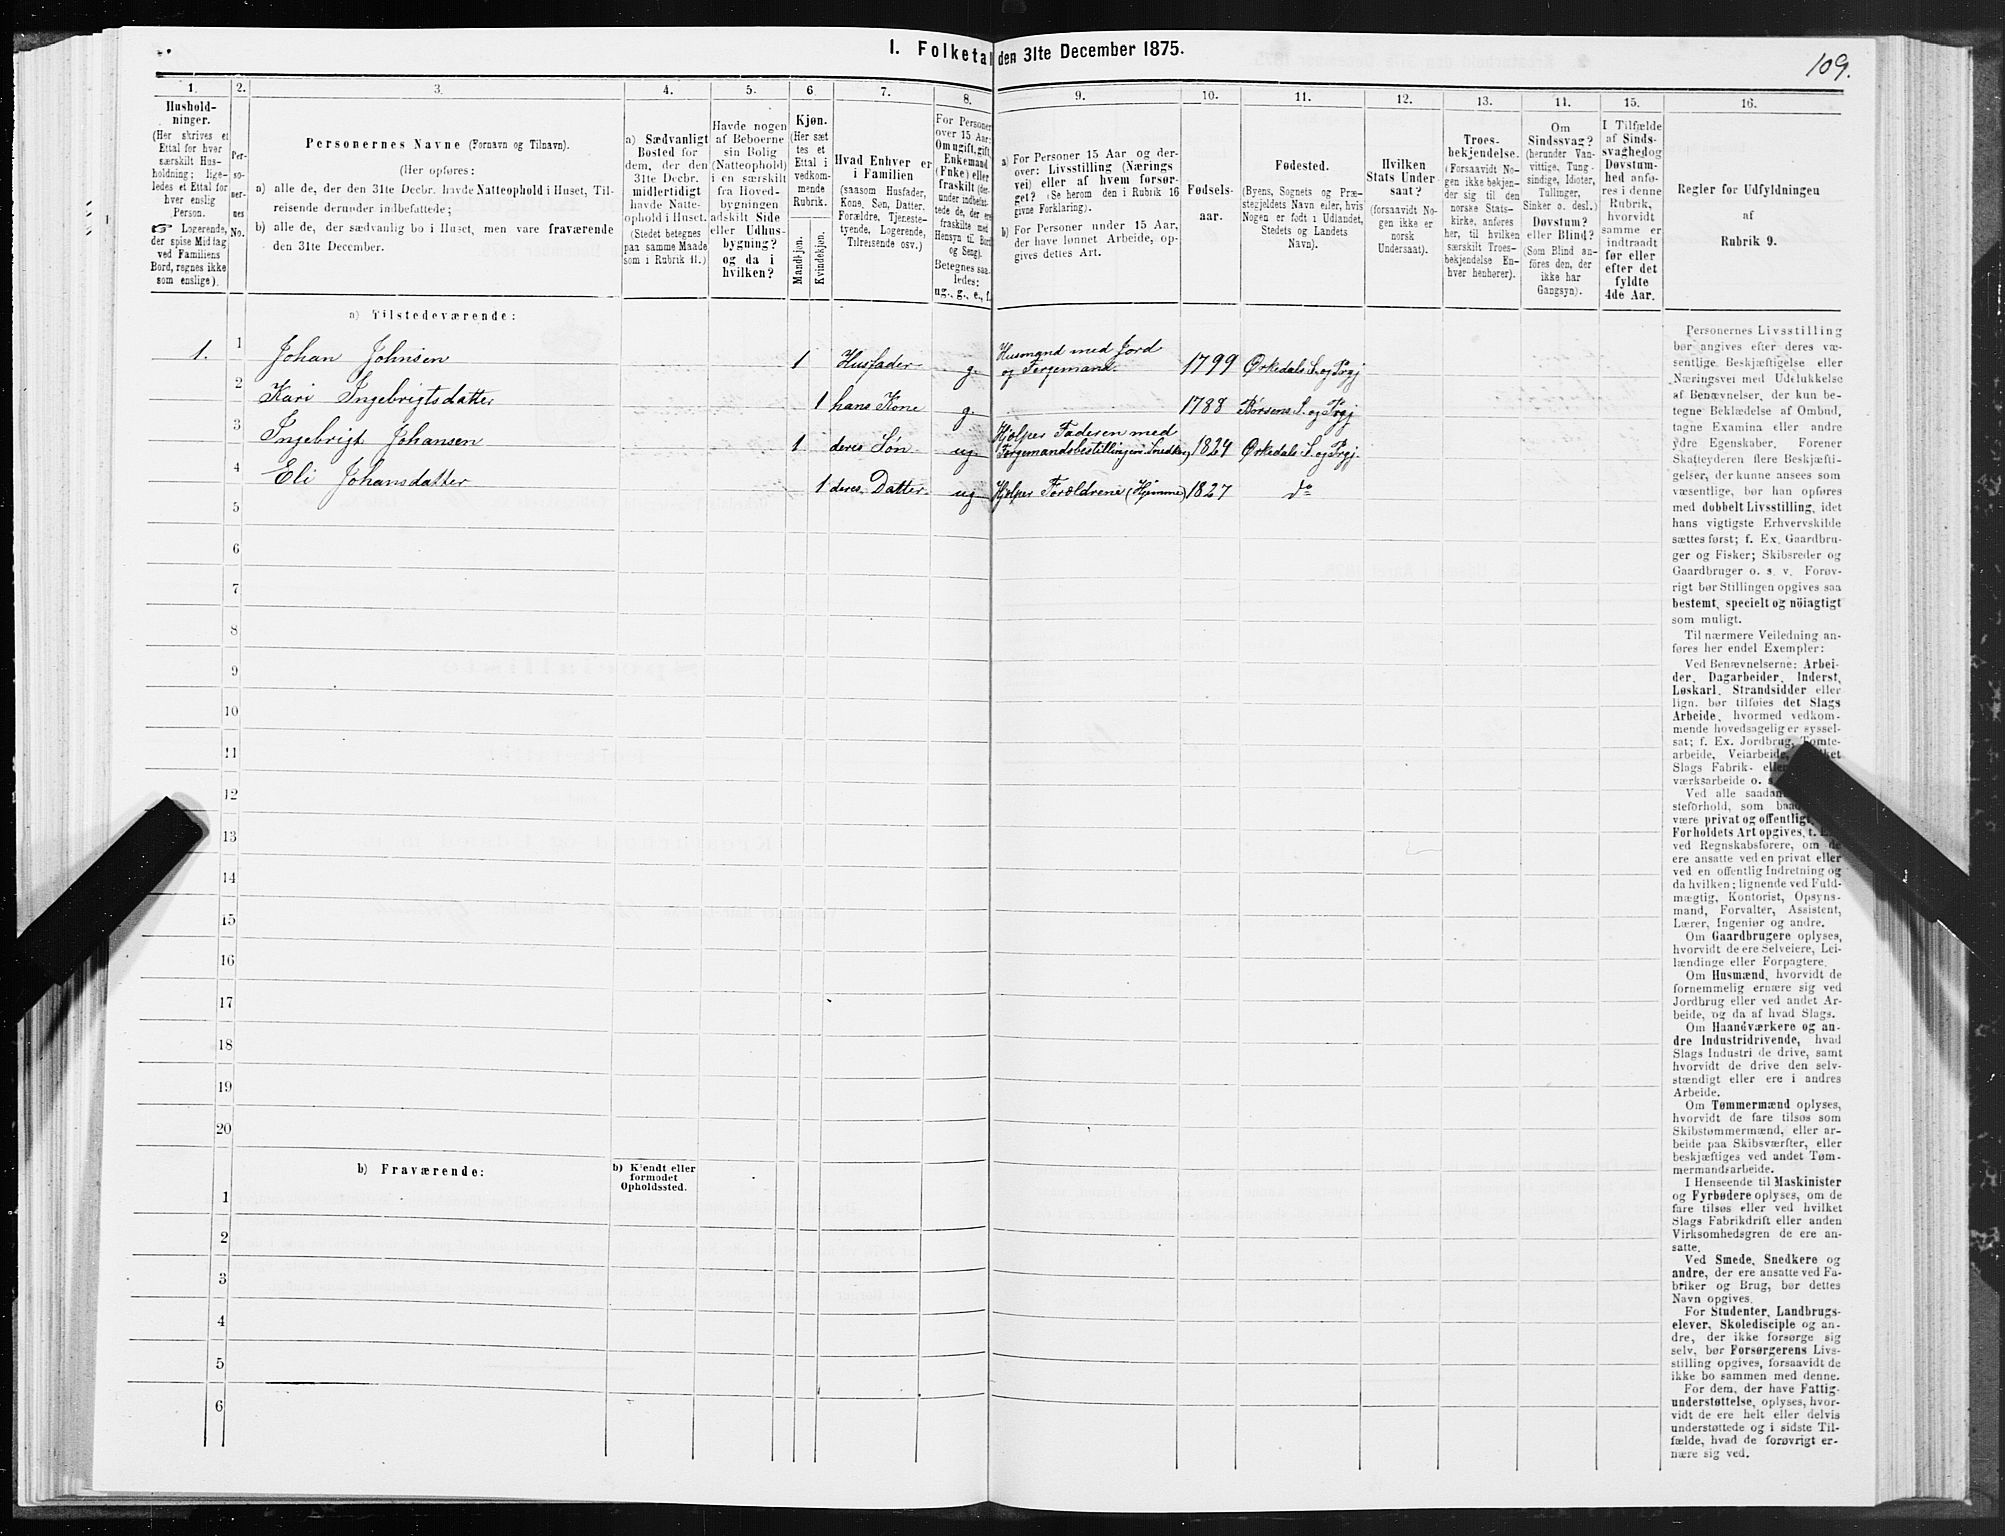 I. Folketal den 31te December 1875.
109.
1.
2.
3.
4.
5.
6
7.
8.
9.
10.
11.
12.
13.
14.
15.
16.
Hushold-
ninger.
(Her skrives et
Ettal for hver
særskilt Hus-
holdning; lige-
ledes et Ettal for
hver enslig
Person.
☞ Logerende,
der spise Middag
ved Familiens
Bord, regnes ikke
som enslige).
Per-
so-
ner-
nes
No.
Personernes Navne (Fornavn og Tilnavn).
(Her opføres:
a) alle de, der den 31te Decbr. havde Natteophold i Huset, Til-
reisende derunder indbefattede;
b) alle de, der sædvanlig bo i Huset, men vare fraværende
den 31te December.
a) Sædvanligt
Bosted for
dem, der den
31te Decbr.
midlertidigt
havde Natte-
ophold i Huset.
(Stedet betegnes
paa samme Maade
som i Rubrik 11.)
Havde nogen
af Beboerne
sin Bolig
(Natteophold)
i en særskilt
fra Hoved-
bygningen
adskilt Side
eller Udhus-
bygning?
og da i
hvilken?
Kjøn.
(Her sæt
tes et
Ettal i
vedkom-
mende
Rubrik.
Mandkjøn.
Kvindekjøn.
Hvad Enhver er
i Familien
(saasom Husfader,
Kone, Søn, Datter,
Forældre, Tjeneste-
tyende, Logerende,
Tilreisende osv.)
For Personer
over 15 Aar:
Om ugift, gift,
Enkemand
(Enke) eller
fraskilt (der-
under indbefat-
tede de, der ere
fraskilte med
Hensyn til Bord
og Seng).
Betegnes saa-
ledes:
ug., g., e., f.
a) For Personer 15 Aar og der-
over: Livsstilling (Nærings
vei) eller af hvem forsør-
get? (Se herom den i Rubrik 16
givne Forklaring).
b) For Personer under 15 Aar,
der have lønnet Arbeide, op-
gives dettes Art.
Fødsels-
aar.
Fødested.
(Byens, Sognets og Præ-
stegjeldets Navn eller, hvis
Nogen er født i Udlandet,
Stedets og Landets
Navn).
Hvilken
Stats Under
saat?
(forsaavidt No-
gen ikke er
norsk
Undersaat).
Troes-
bekjendelse.
(Forsaavidt No-
gen ikke bekjen-
der sig til den
norske Stats-
kirke, anføres
her, til hvilken
særskilt Troes-
bekjendelse En-
hver henhører).
Om
Sindssvag?
(herunder Van-
vittige, Tung-
sindige, Idioter,
Tullinger,
Sinker o. desl.)
Døvstum?
eller Blind?
(Som Blind an-
føres den, der
ikke har
Gangsyn).
I Tilfælde
af Sinds-
svaghed og
Døvstum-
hed anfø-
res i denne
Rubrik,
hvorvidt
samme er
indtraadt
før eller
efter det
fyldte
4de Aar.
Regler for Udfyldningen
af
Rubrik 9.
a) Tilstedeværende:
1. 1 Johan Johnsen 1 Husfader g. Husmand med Jord og Færgemand 1799 Ørkedals S. og Prgj
2 Kari Ingebrigtsdatter 1 hans Kone g. 1788 Børsens S. og Prgj
3 Ingebrigt Johansen 1 deres Søn ug. Hjælper Faderen med Færgemandsbestillingen. Snedker 1824 Ørkedals S. og Prgj.
4 Eli Johansdatter 1 deres Datter ug Hjælper Forældrene (Hjemme) 1827 do
5
6
7
8
9
10
11
12
13
14
15
16
17
18
19
20
b) Fraværende:
b) Kjendt eller
formodet
Opholdssted.
1
2
3
4
5
6
Personernes Livsstilling
bør angives efter deres væ-
sentlige Beskjæftigelse eller
Næringsvei med Udelukkelse
af Benævnelser, der kun be-
tegne Beklædelse af Ombud,
tagne Examina eller andre
ydre Egenskaber. Forener
Skatteyderen flere Beskjæfti-
gelser, der kunne ansees som
væsentlige, bør han opføres
med dobbelt Livsstilling, idet
hans vigtigste Erhvervskilde
sættes først; f. Ex. Gaardbru-
ger og Fisker; Skibsreder og
Gaardbruger o. s. v. Forøv-
rigt bør Stillingen opgives saa
bestemt, specielt og nöiagtigt
som muligt.
Til nærmere Veiledning an-
føres her endel Exempler:
Ved Benævnelserne: Arbei-
der, Dagarbeider, Inderst,
Løskarl, Strandsidder eller
lign. bør tilføies det Slags
Arbeide, hvormed vedkom-
mende hovedsagelig er syssel-
sat; f. Ex. Jordbrug, Tomte-
arbeide, Veiarbeide,
Slags Fabrik-
værksarbeide o.
Ved alle
steforhold, som
være privat og offentligt,
Forholdets Art opgives,
ved Regnskabsførere, om de
ere ansatte ved en privat eller
ved en offentlig Indretning og
da hvilken; lignende ved Fuld-
mægtig, Kontorist, Opsyns-
mand, Forvalter, Assistent,
Lærer, Ingeniør og andre.
Om Gaardbrugere oplyses,
hvorvidt de ere Selveiere, Lei-
lændinge eller Forpagtere.
Om Husmænd, hvorvidt de
fornemmelig ernære sig ved
Jordbrug eller ved andet Ar-
beide, og da af hvad Slags.
Om Haandværkere og an-
dre Industridrivende, hvad
Slags Industri de drive, samt
hvorvidt de drive den selv-
stændigt eller ere i andres
Arbeide.
Om Tømmermænd oplyses,
hvorvidt de fare tilsøs som
Skibstømmermænd, eller ar-
beide paa Skibsværfter, eller
beskjæftiges ved andet Tøm-
mermandsarbeide.
I Henseende til Maskinister
og Fyrbødere oplyses, om de
fare tilsøs eller ved hvilket
Slags Fabrikdrift eller anden
Virksomhedsgren de ere an-
satte.
Ved Smede, Snedkere og
andre, der ere ansatte ved Fa-
briker og Brug, bør dettes
Navn opgives.
For Studenter, Landbrugs-
elever, Skoledisciple og an-
dre, der ikke forsørge sig
selv, bør Forsørgerens Livs-
stilling opgives, forsaavidt de
ikke bo sammen med denne.
For dem, der have Fattig-
understøttelse, oplyses, hvor-
vidt de ere helt eller delvis
understøttede og i sidste Til-
fælde, hvad de forøvrigt er-
nære sig ved.